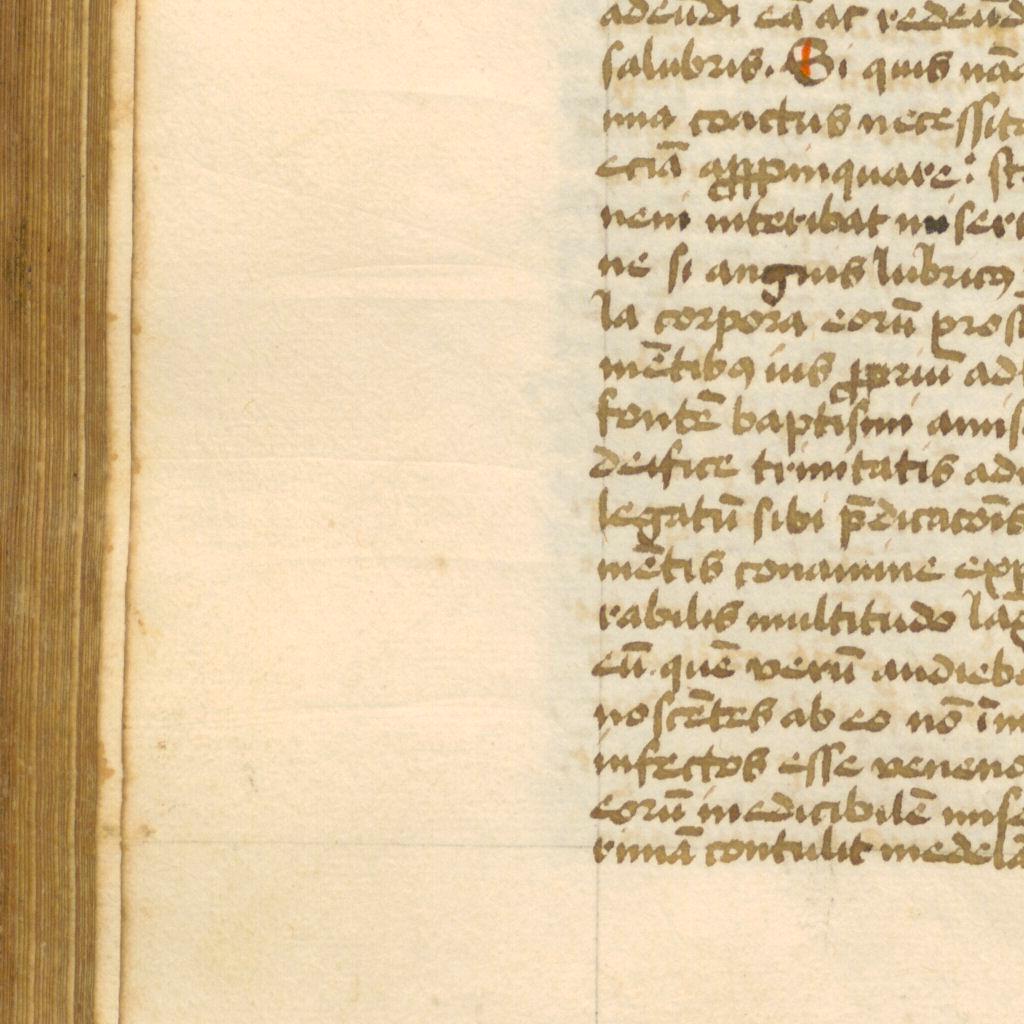 adeūdi eā ac redeūd
salubris. Si quis nāq
ima coactus necessita
eciā appropinquare: st
nem interibat miser
ne si anguis lubricꝯ
la corpora eorū pros
mētibꝯ ius ꝓpriū ad
fontē baptismi amis
deifice trinitatis ad
legatū sibi p̄dicacōis
mētis conamine exp
rabilis multitudo lāg
eū. quē verū audieb
noscētes ab eo nō īm
infectos esse veneno
eorū inedicibilē mise
rimā contulit medelā